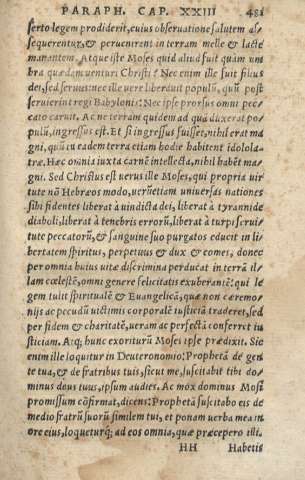 PARAPH. CAP. XXIII 481
serto legem prodiderit, cuius obseruatione salutem as
sequerentur, & peruenirent in terram melle & lacte
manantem. Atque iste Moses quid aliud fuit quàm um
bra quædam uenturi Christi? Nec enim ille fuit filius
dei, sed seruus: nec ille uere liberauit populũ, quũ post
seruierint regi Babylonis: Nec ipse prorsus omni pec-
cato caruit. Ac ne terram quidem ad quã duxerat po-
pulũ, ingressus est. Et si ingressus fuisset, nihil erat ma
gni, quũ in eadem terra etiam hodie habitent idolola-
træ. Hæc omnia iuxta carnẽ intellecta, nihil habẽt ma
gni. Sed Christus est uerus ille Moses, qui propria uir
tute nõ Hebræos modo, uerũetiam uniuersas nationes
sibi fidentes liberat à uindicta dei, liberat à tyrannide
diaboli, liberat à tenebris errorũ, liberat à turpi serui-
tute peccatorũ, & sanguine suo purgatos educit in li-
bertatem spiritus, perpetuus & dux & comes, donec
per omnia huius uitæ discrimina perducat in terrã il-
lam cœlestẽ, omni genere felicitatis exuberantẽ: qui le
gem tulit spiritualẽ & Euangelicã, quæ non cæremo-
nijs ac pecudũ uictimis corporalẽ iusticiã traderet, sed
per fidem & charitatẽ, ueram ac perfectã conferret iu
sticiam. Atq; hunc exoriturũ Moses ipse prædixit. Sic
enim ille loquitur in Deuteronomio: Prophetã de gen
te tua, & de fratribus tuis, sicut me, suscitabit tibi do-
minus deus tuus, ipsum audies. Ac mox dominus Mosi
promissum cõfirmat, dicens: Prophetã suscitabo eis de
medio fratrũ suorũ similem tui, et ponam uerba mea in
ore eius, loqueturq; ad eos omnia, quæ præcepero illi.
HH Habetis